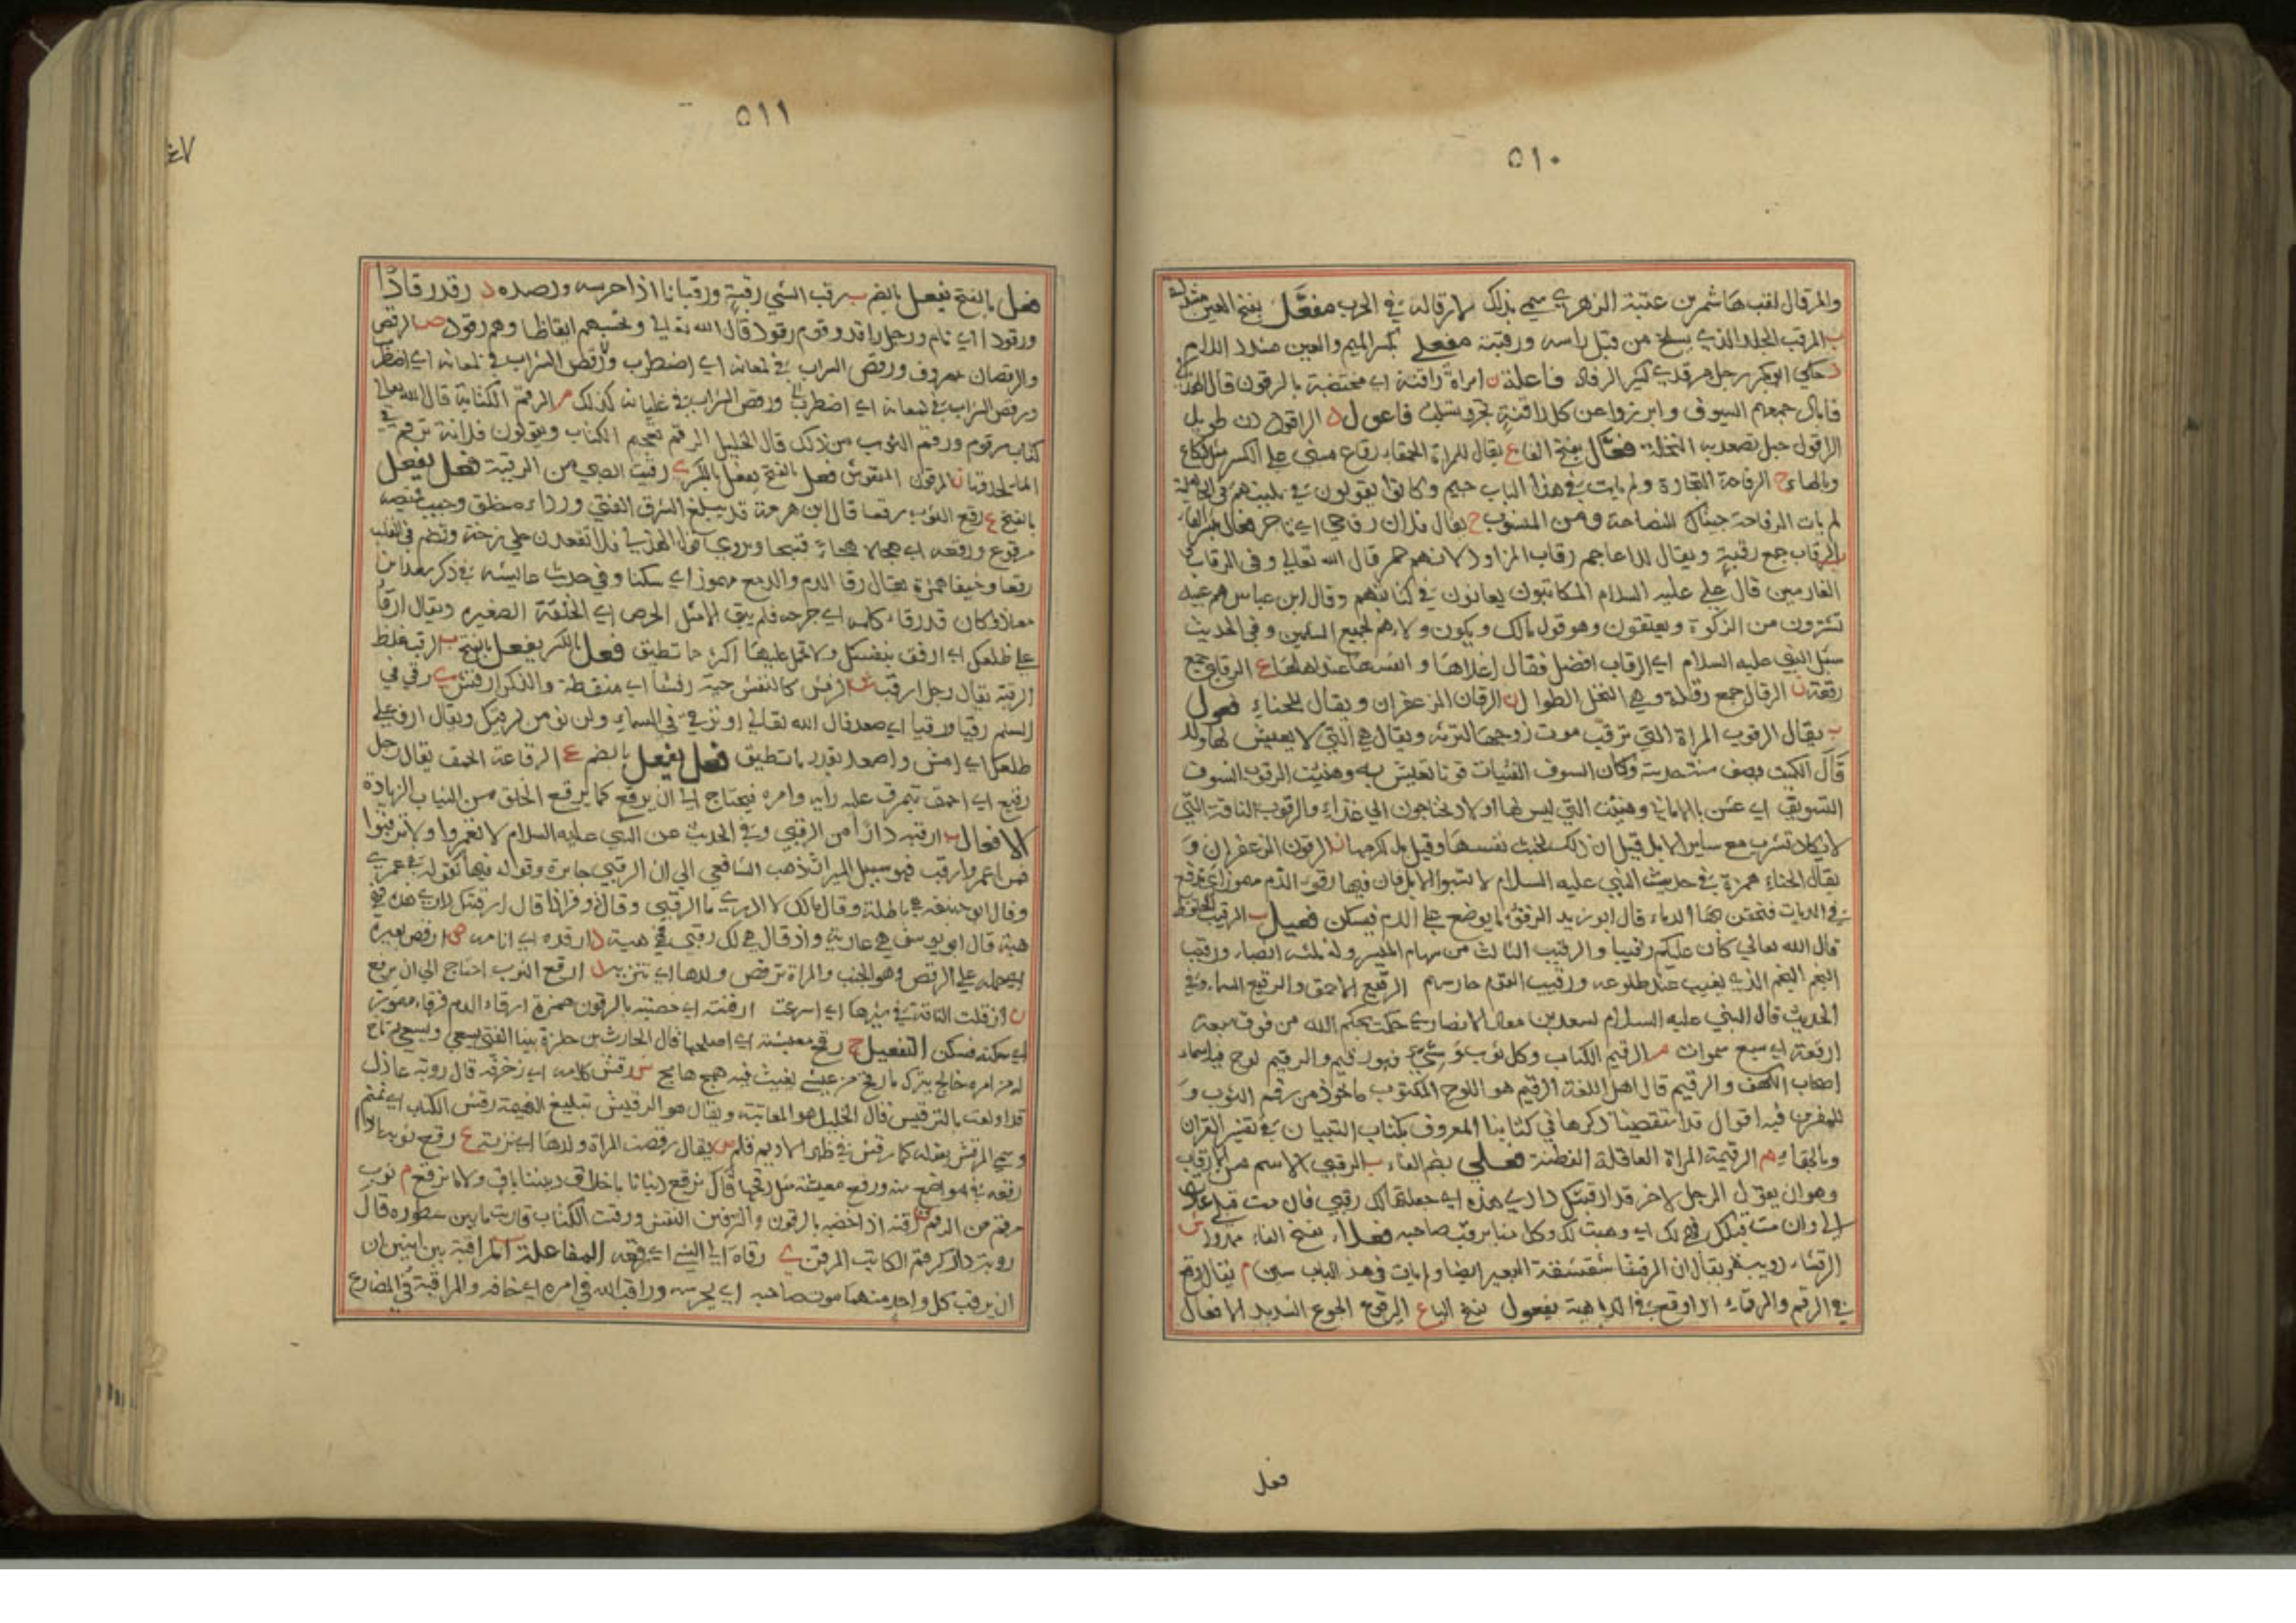 ٥١٠
والمرقال لقب هاشم بن عتبة الزهري سمي بذلك لارقاله في الحرب مفعل بفتح العين مشددة
ب المرقب الجلد الذي يسلخ من قبل راسه ورقبته مفعلي بكسر الميم والعين مشدد اللام
د حكي ابو بكر رجل مرقدي كثير الرقاد فاعلة ن امراة راقنة اي مختضبة بالرقون قال
جمعهم السيوف عن كل راقنة تجر فاعول د الراقود دن طويل
الراقول حبل يصعد به النخلة فعال بفتح الفا ع يقال للمراة الحمقاء رقاع مبني علي الكسر مثل لكاع
وبالهاء ح الرقاحة التجارة ولم يات في هذا الباب جيم وكانوا يقولون في تلبيتهم في الجاهلية
لم نات للرقاحة جيناك للنصاحة ومن المنسوب ح يقال فلان رقاحي اي تاجر فعال بكسر الفاء
ب الرقاب جمع رقبة ويقال للاعاجم رقاب المزاود لانهم حمر قال الله تعالي وفي الرقاب
الغارمين قال علي عليه السلام المكاتبون يعانون في كتابتهم وقال ابن عباس هم عبيد
تشترون من الزكوة ويعتقون وهو قول مالك ويكون ولاءهم لجميع المسلمين وفي الحديث
سئل النبي عليه السلام اي الرقاب افضل فقال اغلاها وانفسها عند اهلها ع الرقاع جمع
رقعة ل الرقال جمع رقلة وهي النخل الطوال ن الرقان الزعفران ويقال للحناء فعول
ب يقال الرقوب المراة التي ترقب موت زوجها لترثه ويقال هي التي لا يعيش لها ولد
قال الكميت يصف
اي عشن وهنيت التي ليس لها اولاد تحتاجون الي غذاء والرقوب الناقة التي
لا تكاد تشرب مع ساير الابل قيل ان ذلك لخبث نفسها وقيل بل لكرمها ن الرقون الزعفران و
يقال الحناء همزة في حديث النبي عليه السلام لا تسبوا الابل فان فيها رقوء الدم مهموز اي تدفع
في الديات فتحقن بها الدماء قال ابو زيد الرقوء ما يوضع علي الدم فيسكن فعيل ب الرقيب الحفيظ
قال الله تعالي كان عليكم رقيبا والرقيب الثالث من سهام الميسر وله ثلثة انصباء ورقيب
النجم النجم الذي يغيب عند طلوعه ورقيب القوم حارسهم الرقيع الاحمق والرقيع السماء وفي
الحديث قال النبي عليه السلام لسعد بن معاذ الانصاري حكمت بحكم الله من فوق سبعة
ارقعة اي سبع سموات م الرقيم الكتاب وكل ثوب وشي فهو رقيم والرقيم لوح فيه اسماء
اصحاب الكهف والرقيم قال اهل اللغة الرقيم هو اللوح المكتوب ماخوذ من رقم الثوب و
للمفسرين فيه اقوال قد استقصينا ذكرها في كتابنا المعروف بكتاب التبيان في تفسير القران
وبالهاء م الرقيمة المراة العاقلة الفطنة فعلي بضم الفاء ب الرقبي الاسم من الارقاب
وهو ان يقول الرجل لاخر قد ارقبتك داري هذه اي جعلتها لك رقبي فان مت قبلي عادت
الي وان مت قبلك فهي لك اي وهبت لك وكل منا يرقب صاحبه فعلاء بفتح الفاء ممدود ش
الرقشاء دويبة ويقال ان الرقشاء شقشقة البعير ايضا ولم يات في هذا الباب سين م يقال وقع
في الرقم والرقماء اذا وقع في الداهية يفعول بفتح الياء ع اليرقوع الجوع الشديد الافعال
فعل
٥١١
٤٧
فعل بالفتح يفعل بالضم ب رقب الشي رقبة ورقبانا اذا حرسه ورصده د رقد رقادا
ورقودا اي نام ورجل راقد وقوم رقود قال الله تعالي وتحسبهم ايقاظا وهم رقود ص الرقص
والرقصان معروف ورقص السراب في لمعانه اي اضطرب ورقص الشراب
في غليانه كذلك م الرقم الكتابة قال الله تعالي
كتاب مرقوم ورقم الثوب من ذلك قال الخليل الرقم تعجيم الكتاب ويقولون فلانة ترقم في
الماء ن المرقون المنقوش فعل بالفتح يفعل بالكسر ي رقيت الصبي من الرقية فعل يفعل
بالفتح ع رقع الثوب رقعا قال ابن هرمة قد يبلغ الشرف الفتي ورداءه خلق وجيب قميصه
مرقوع ورقعه اي هجاه هجاء قبيحا ويروي قول الهذلي فلا تقعدن علي زخة وتضمر في القلب
همزة يقال رقا الدم والدمع مهموز اي سكنا وفي حديث عايشة في ذكر سعد بن
معاذ كان قد رقاء كلمه اي جرحه فلم يبق الا مثل الخرص اي الحلقة الصغيرة ويقال ارقا
علي ظلعك اي ارفق بنفسك ولا تحمل عليها اكثر ما تطيق فعل بالكسر يفعل بالفتح ب الرقب غلظ
الرقبة يقال رجل ارقب ش الرقش كالنقش حية رقشاء اي منقطة والذكر ارقش ي رقي في
السلم رقيا ورقيا اي صعد قال الله تعالي او ترقي في السماء ولن نومن لرقيك ويقال ارق علي
ظلعك اي امش واصعد بقدر ما تطيق فعل يفعل بالضم ع الرقاعة الحمق يقال رجل
رقيع اي احمق يتمزق عليه رايه وامره فيحتاج الي ان يرقع كما يرقع الخلق من الثياب الزيادة
الافعال ب ارقبه دارا من الرقبي وفي الحديث عن النبي عليه السلام لا تعمروا ولا ترقبوا
فمن اعمر وارقب فهو سبيل الميراث ذهب الشافعي الي ان الرقبي جايزة وقوله فيها كقوله في عمري
وقال ابو حنيفة هي باطلة وقال مالك لا ادري ما الرقبي وقال زفر اذا قال ارقبتك داري هذه فهي
هبة قال ابو يوسف هي عارية واذا قال هي لك رقبي فهي هبة د ارقده اي انامه ص ارقص بعيره
اي حمله علي الرقص وهو الخبب والمراة ترقص ولدها اي تنزيه ع ارقع الثوب احتاج الي ان يرقع
ل ارقلت الناقة في سيرها اي اسرعت ارقنت اي خضبته بالرقون همزة ارقاء الدم فرقاء مهموز
اي سكنه فسكن التفعيل ح رقح معيشته اي اصلحها قال الحارث بن حلزة بينا الفتي يسعي ويسعي له تاح
له من امره خالج يترك ما رقح من عيشه يعيث فيه همج هامج ش رقش كلامه اي زخرفه قال رؤبة عاذل
قد اولعت بالترقيش قال الخليل هو المعاتبة ويقال هو الترقيش تبليغ النميمة رقش الكتاب اي نمنم
وسمي المرقش بقوله كما رقش في ظهر الاديم قلم ص يقال رقصت المراة ولدها اي نزته ع رقع ثوبه اذا
رقعه في مواضع منه ورقع معيشته مثل رقحها قال نرقع دنيانا باخلاق ديننا فلا باق ولا ما نرقع م ثوب
مرقم من الرقم ن رقنه اذا خضبه بالرقون والترقين النقش ورقنت الكتاب قاربت ما بين سطوره قال
رؤبة دار كرقم الكاتب المرقن ي رقاه الي الشي اي رفعه المفاعلة ب المراقبة بين اثنين ان
ان يرقب كل واحد منهما موت صاحبه اي يحرسه وراقب الله في امره اي خافه والمراقبة في المضارع